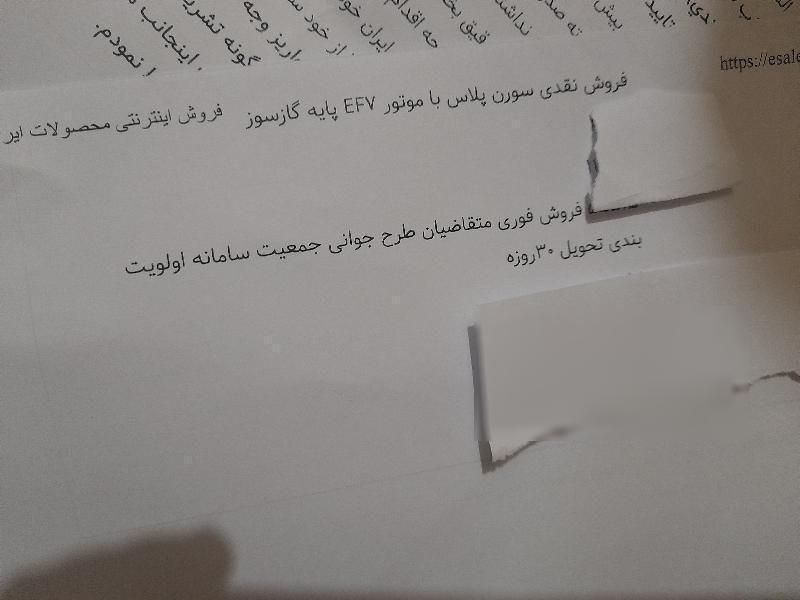 تایید
بیش
نه صد
نداشت
قیق بخ
حه اقدام
ایران خو
از خود س
اریز وجه
گونه تشری
اینجانب
ا نمودم.
https://esale
فروش نقدی سورن پلاس با موتور EF۷ پایه گازسوز فروش اینترنتی محصولات ایر
فروش فوری متقاضیان طرح جوانی جمعیت سامانه اولویت
بندی تحویل ۳۰روزه